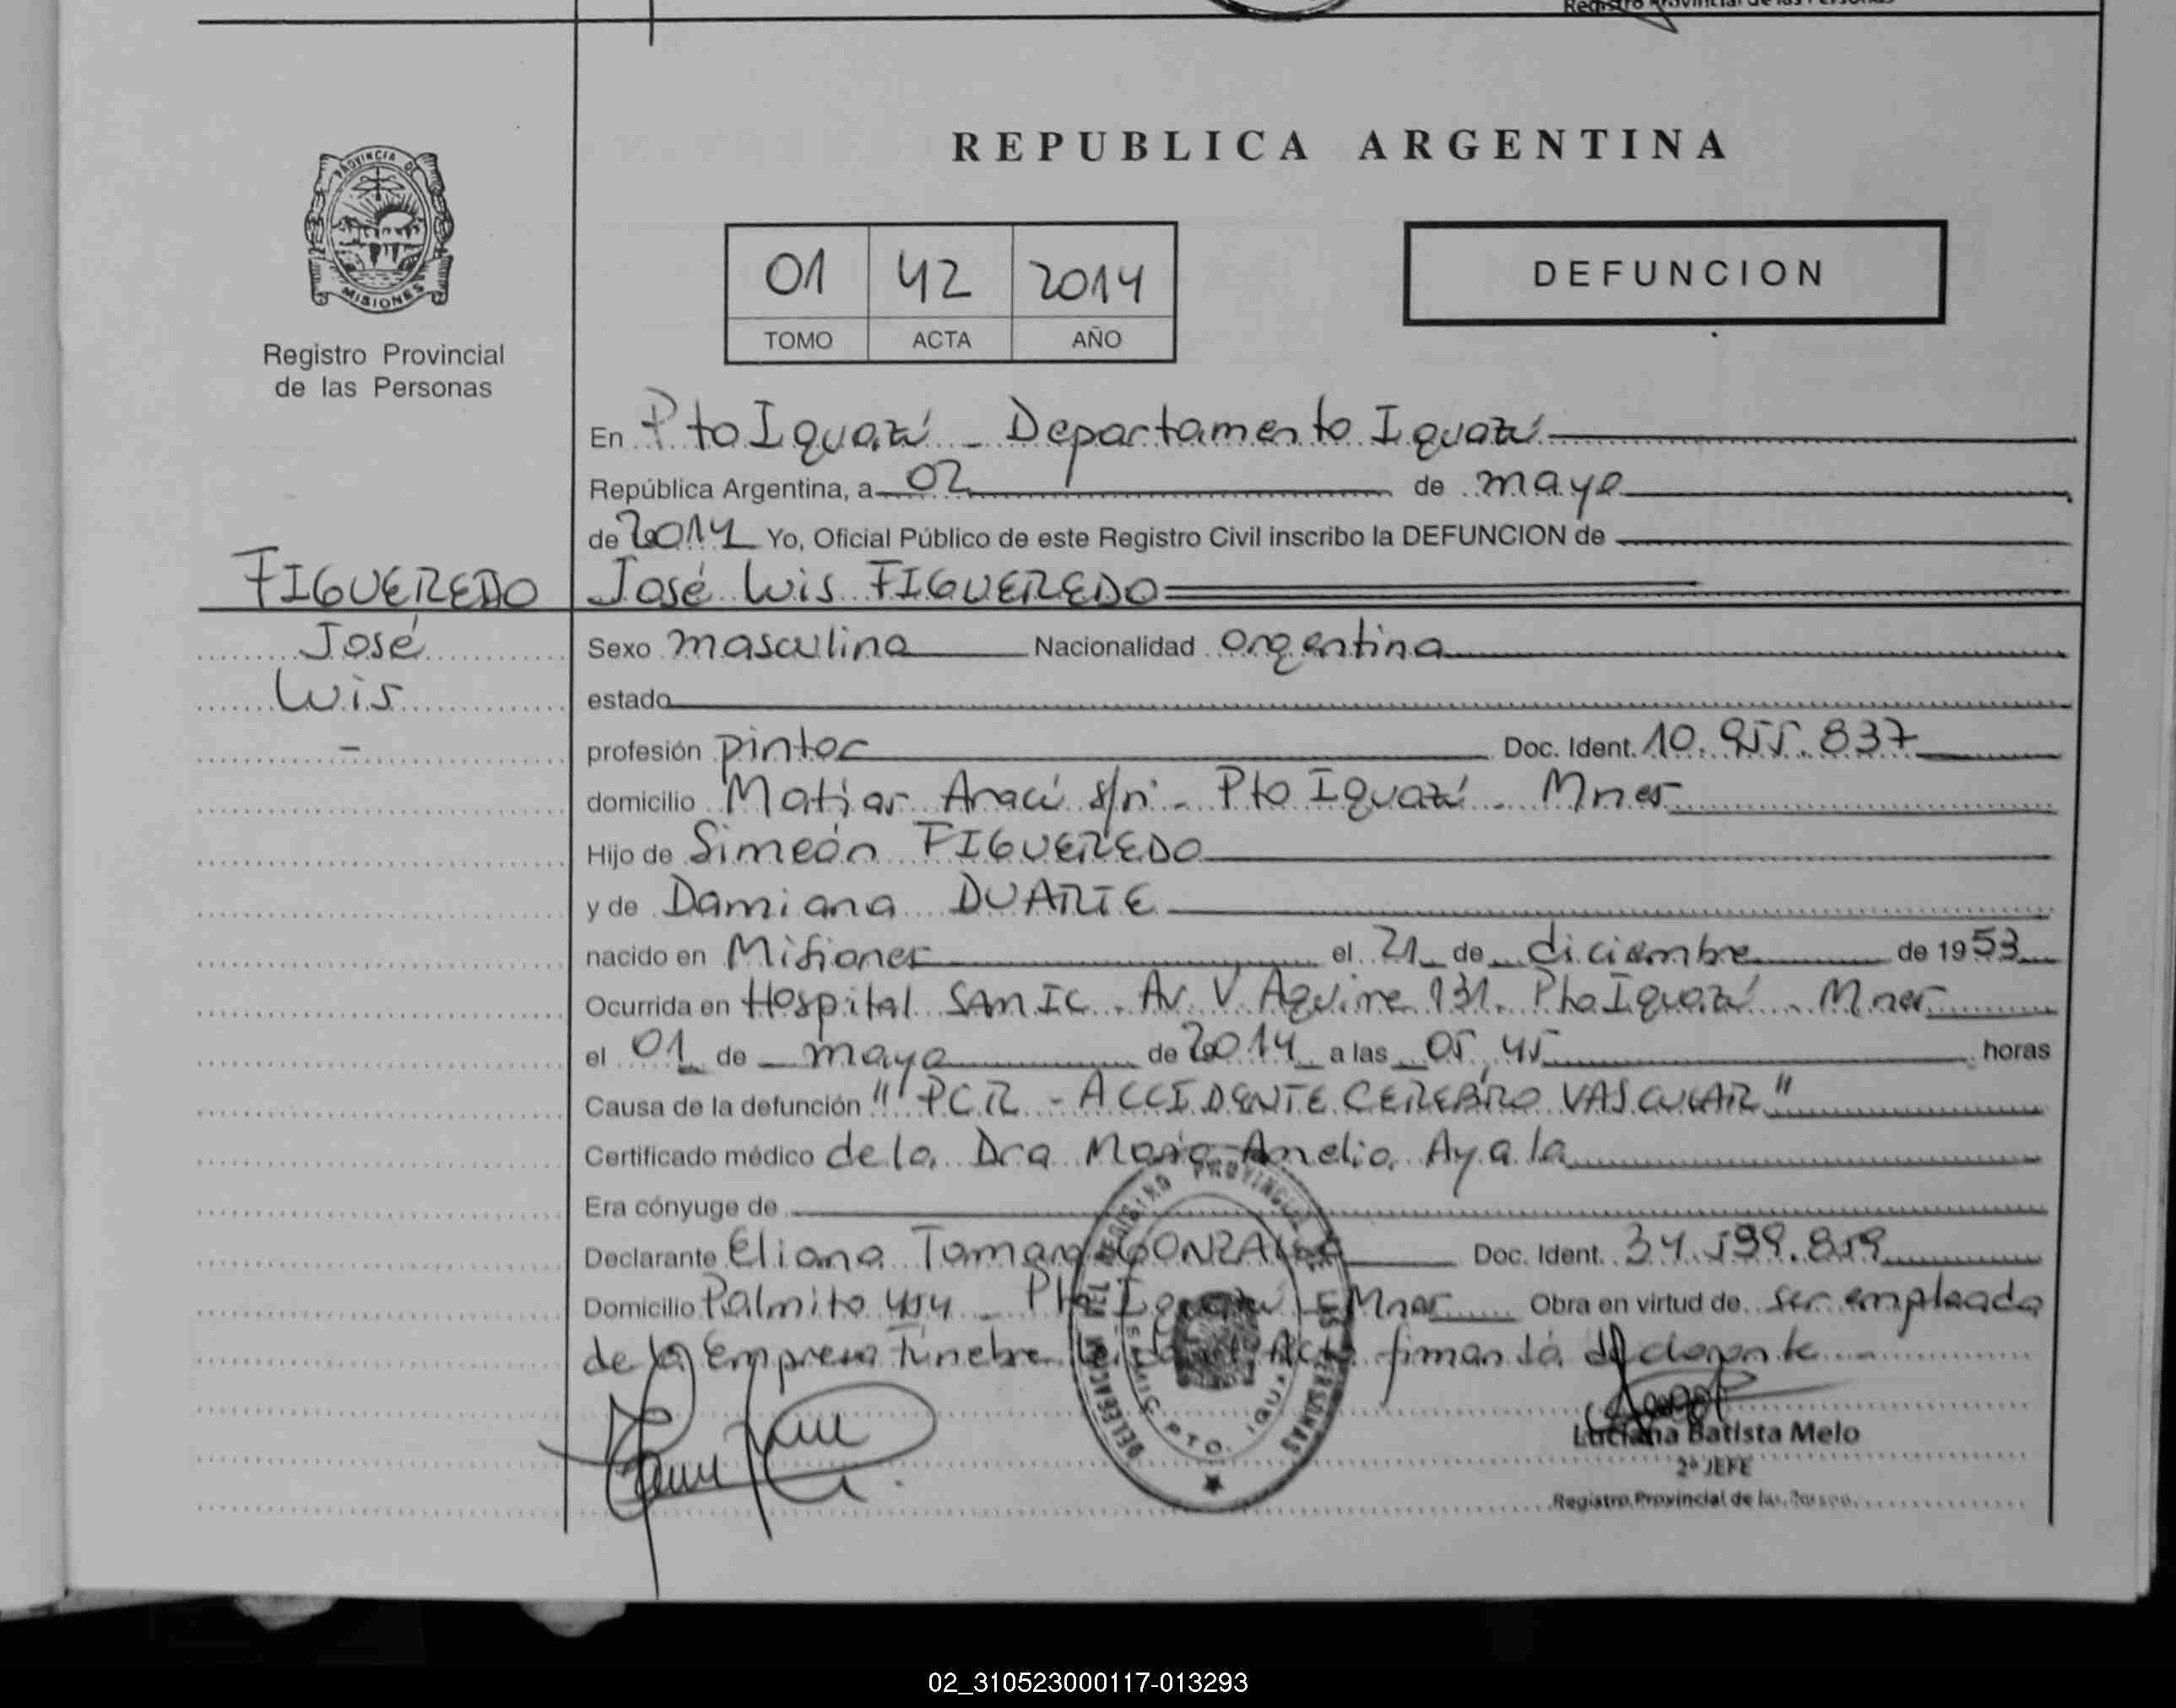 Registro Provincial de las Personas
PROVINCIA DE
MISIONES
Registro Provincial
de las Personas
REPUBLICA ARGENTINA
01 42 2014
TOMO ACTA AÑO
DEFUNCION
En Pto Iguazú - Departamento Iguazú
República Argentina, a 02 de mayo
de 2014 Yo, Oficial Público de este Registro Civil inscribo la DEFUNCION de
FIGUEREDO José Luis FIGUEREDO
José Sexo masculino Nacionalidad argentina
Luis estado
- profesión pintor Doc. Ident. 10.955.837
domicilio Matías Aracú s/n - Pto Iguazú - Mnes
Hijo de Simeón FIGUEREDO
y de Damiana DUARTE
nacido en Misiones el 21 de diciembre de 1953
Ocurrida en Hospital SAMIC. Av. V. Aguirre 131. Pto Iguazú - Mnes
el 01 de mayo de 2014 a las 05,45 horas
Causa de la defunción "PCR - ACCIDENTE CEREBRO VASCULAR"
Certificado médico de la Dra Maria Amelia Ayala
Era cónyuge de
Declarante Eliana Tamara GONZALEZ Doc. Ident. 34.199.819
Domicilio Palmito 414 - Pto Iguazú - Mnes Obra en virtud de ser empleada
de la empresa fúnebre Leída el Acta firman la declarante
DELEGACION DEL REGISTRO PROVINCIAL DE LAS PERSONAS
SAMIC PTO. IGUA
Luciana Batista Melo
2ª JEFE
Registro Provincial de las
02_310523000117-013293